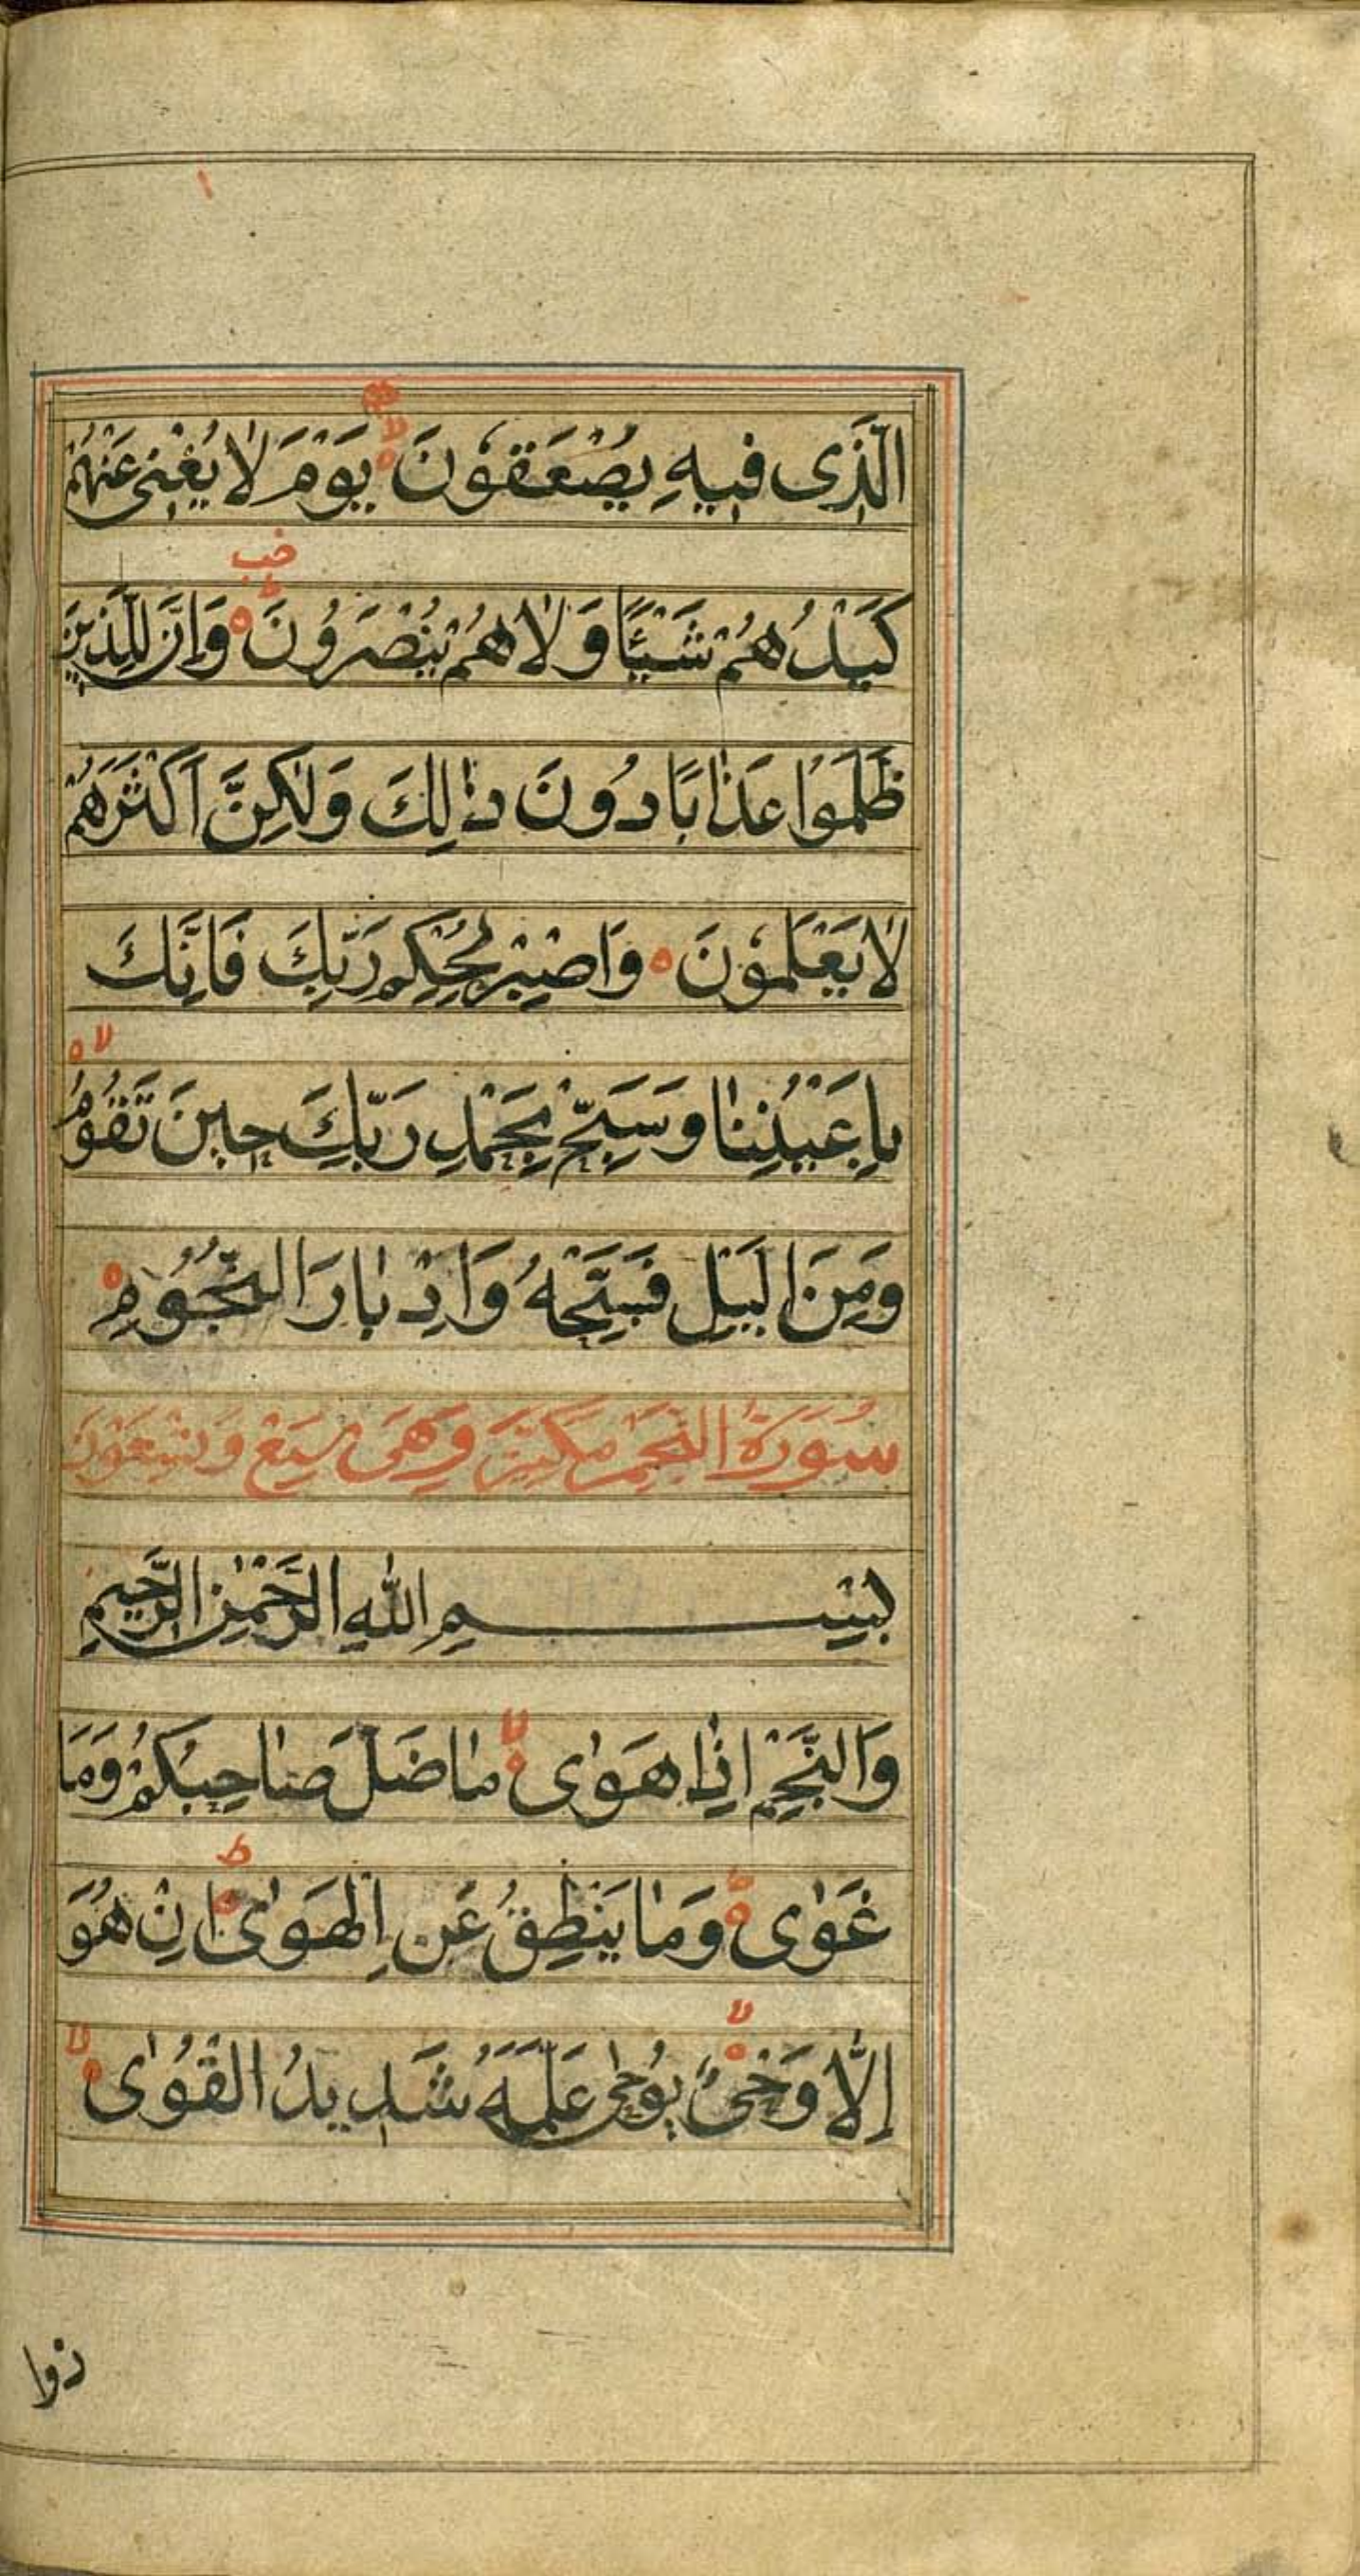 الَّذِى فِيهِ يُصْعَقُونَ يَوْمَ لَا يُغْنِى عَنْهُمْ
كَيْدُهُمْ شَيْئًا وَلَا هُمْ يُنْصَرُونَ وَاِنَّ لِلَّذِينَ
ظَلَمُوا عَذَابًا دُونَ ذٰلِكَ وَلٰكِنَّ اَكْثَرَهُمْ
لَا يَعْلَمُونَ وَاصْبِرْ لِحُكْمِ رَبِّكَ فَاِنَّكَ
بِاَعْيُنِنَا وَسَبِّحْ بِحَمْدِ رَبِّكَ حِينَ تَقُومُ
وَمِنَ الَّيْلِ فَسَبِّحْهُ وَاِدْبَارَ النُّجُومِ
سُورَةُ النَّجْمِ مَكِّيَّة وَهِىَ وَسِتُّونَ
بِسْمِ اللّٰهِ الرَّحْمٰنِ الرَّحِيمِ
وَالنَّجْمِ اِذَا هَوٰى مَا ضَلَّ صَاحِبُكُمْ وَمَا
غَوٰى وَمَا يَنْطِقُ عَنِ الْهَوٰى اِنْ هُوَ
اِلَّا وَحْىٌ يُوحٰى عَلَّمَهُ شَدِيدُ الْقُوٰى
ذوا